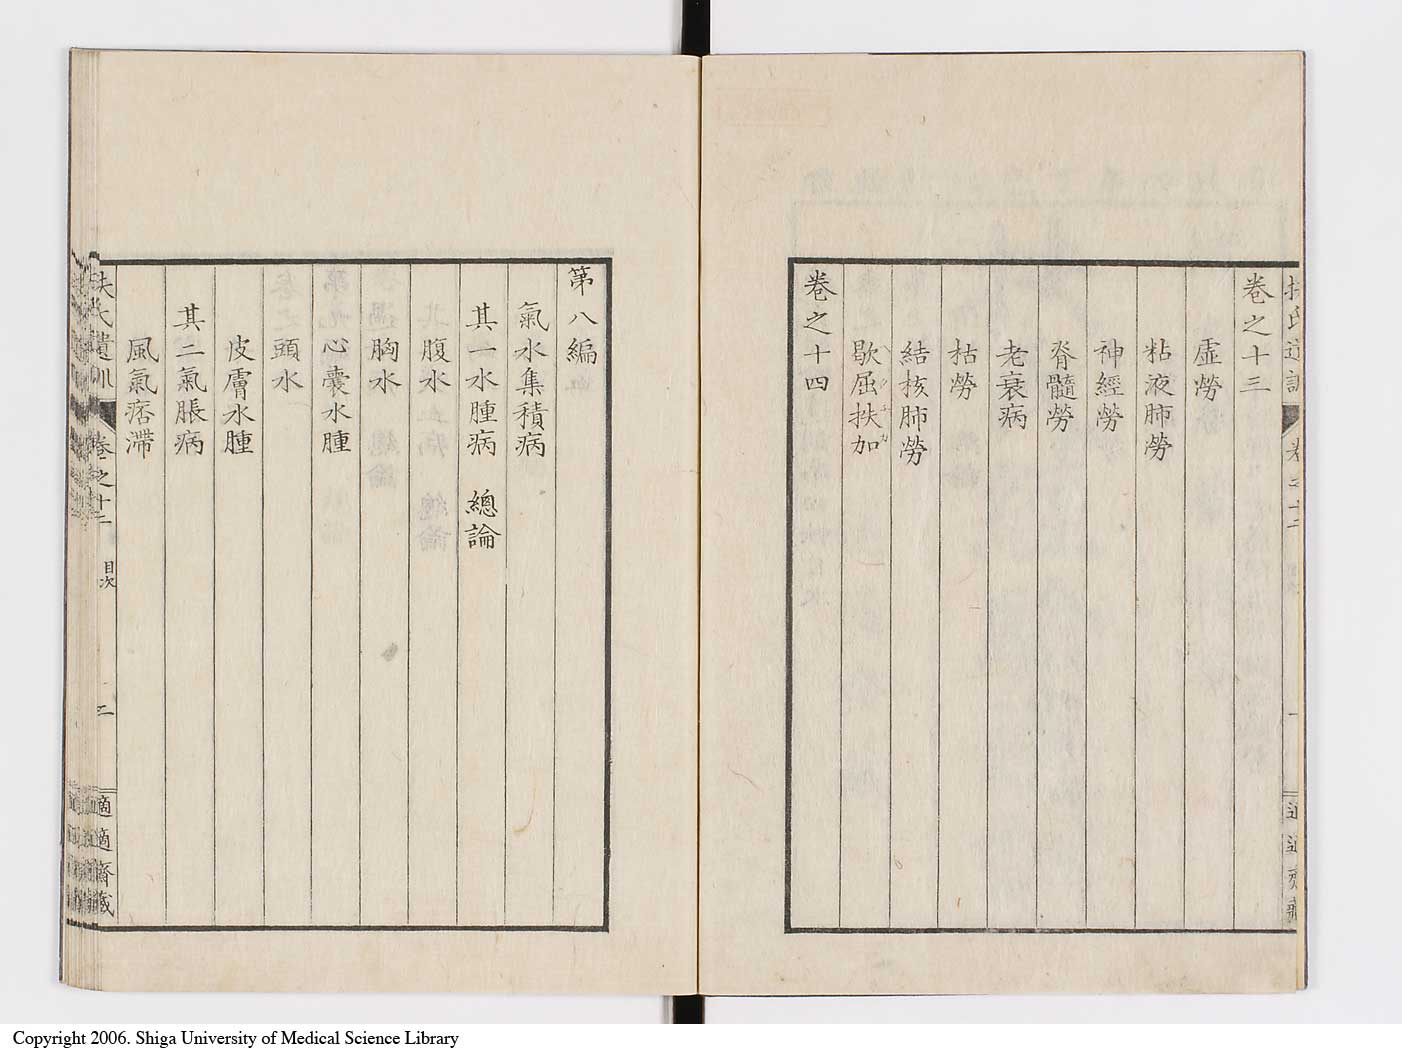 卷之十三
虛勞
粘液肺勞
神經勞
脊髓勞
老衰病
枯勞
結核肺勞
歇屈扶加
卷之十四
第八編
氣水集積病
其一水腫病 總論
腹水
胸水
心囊水腫
頭水
皮膚水腫
其二氣脹病
風氣痞滯
扶氏遺訓 卷之十二 目次 二 適適齋藏
Copyright 2006. Shiga University of Medical Science Library